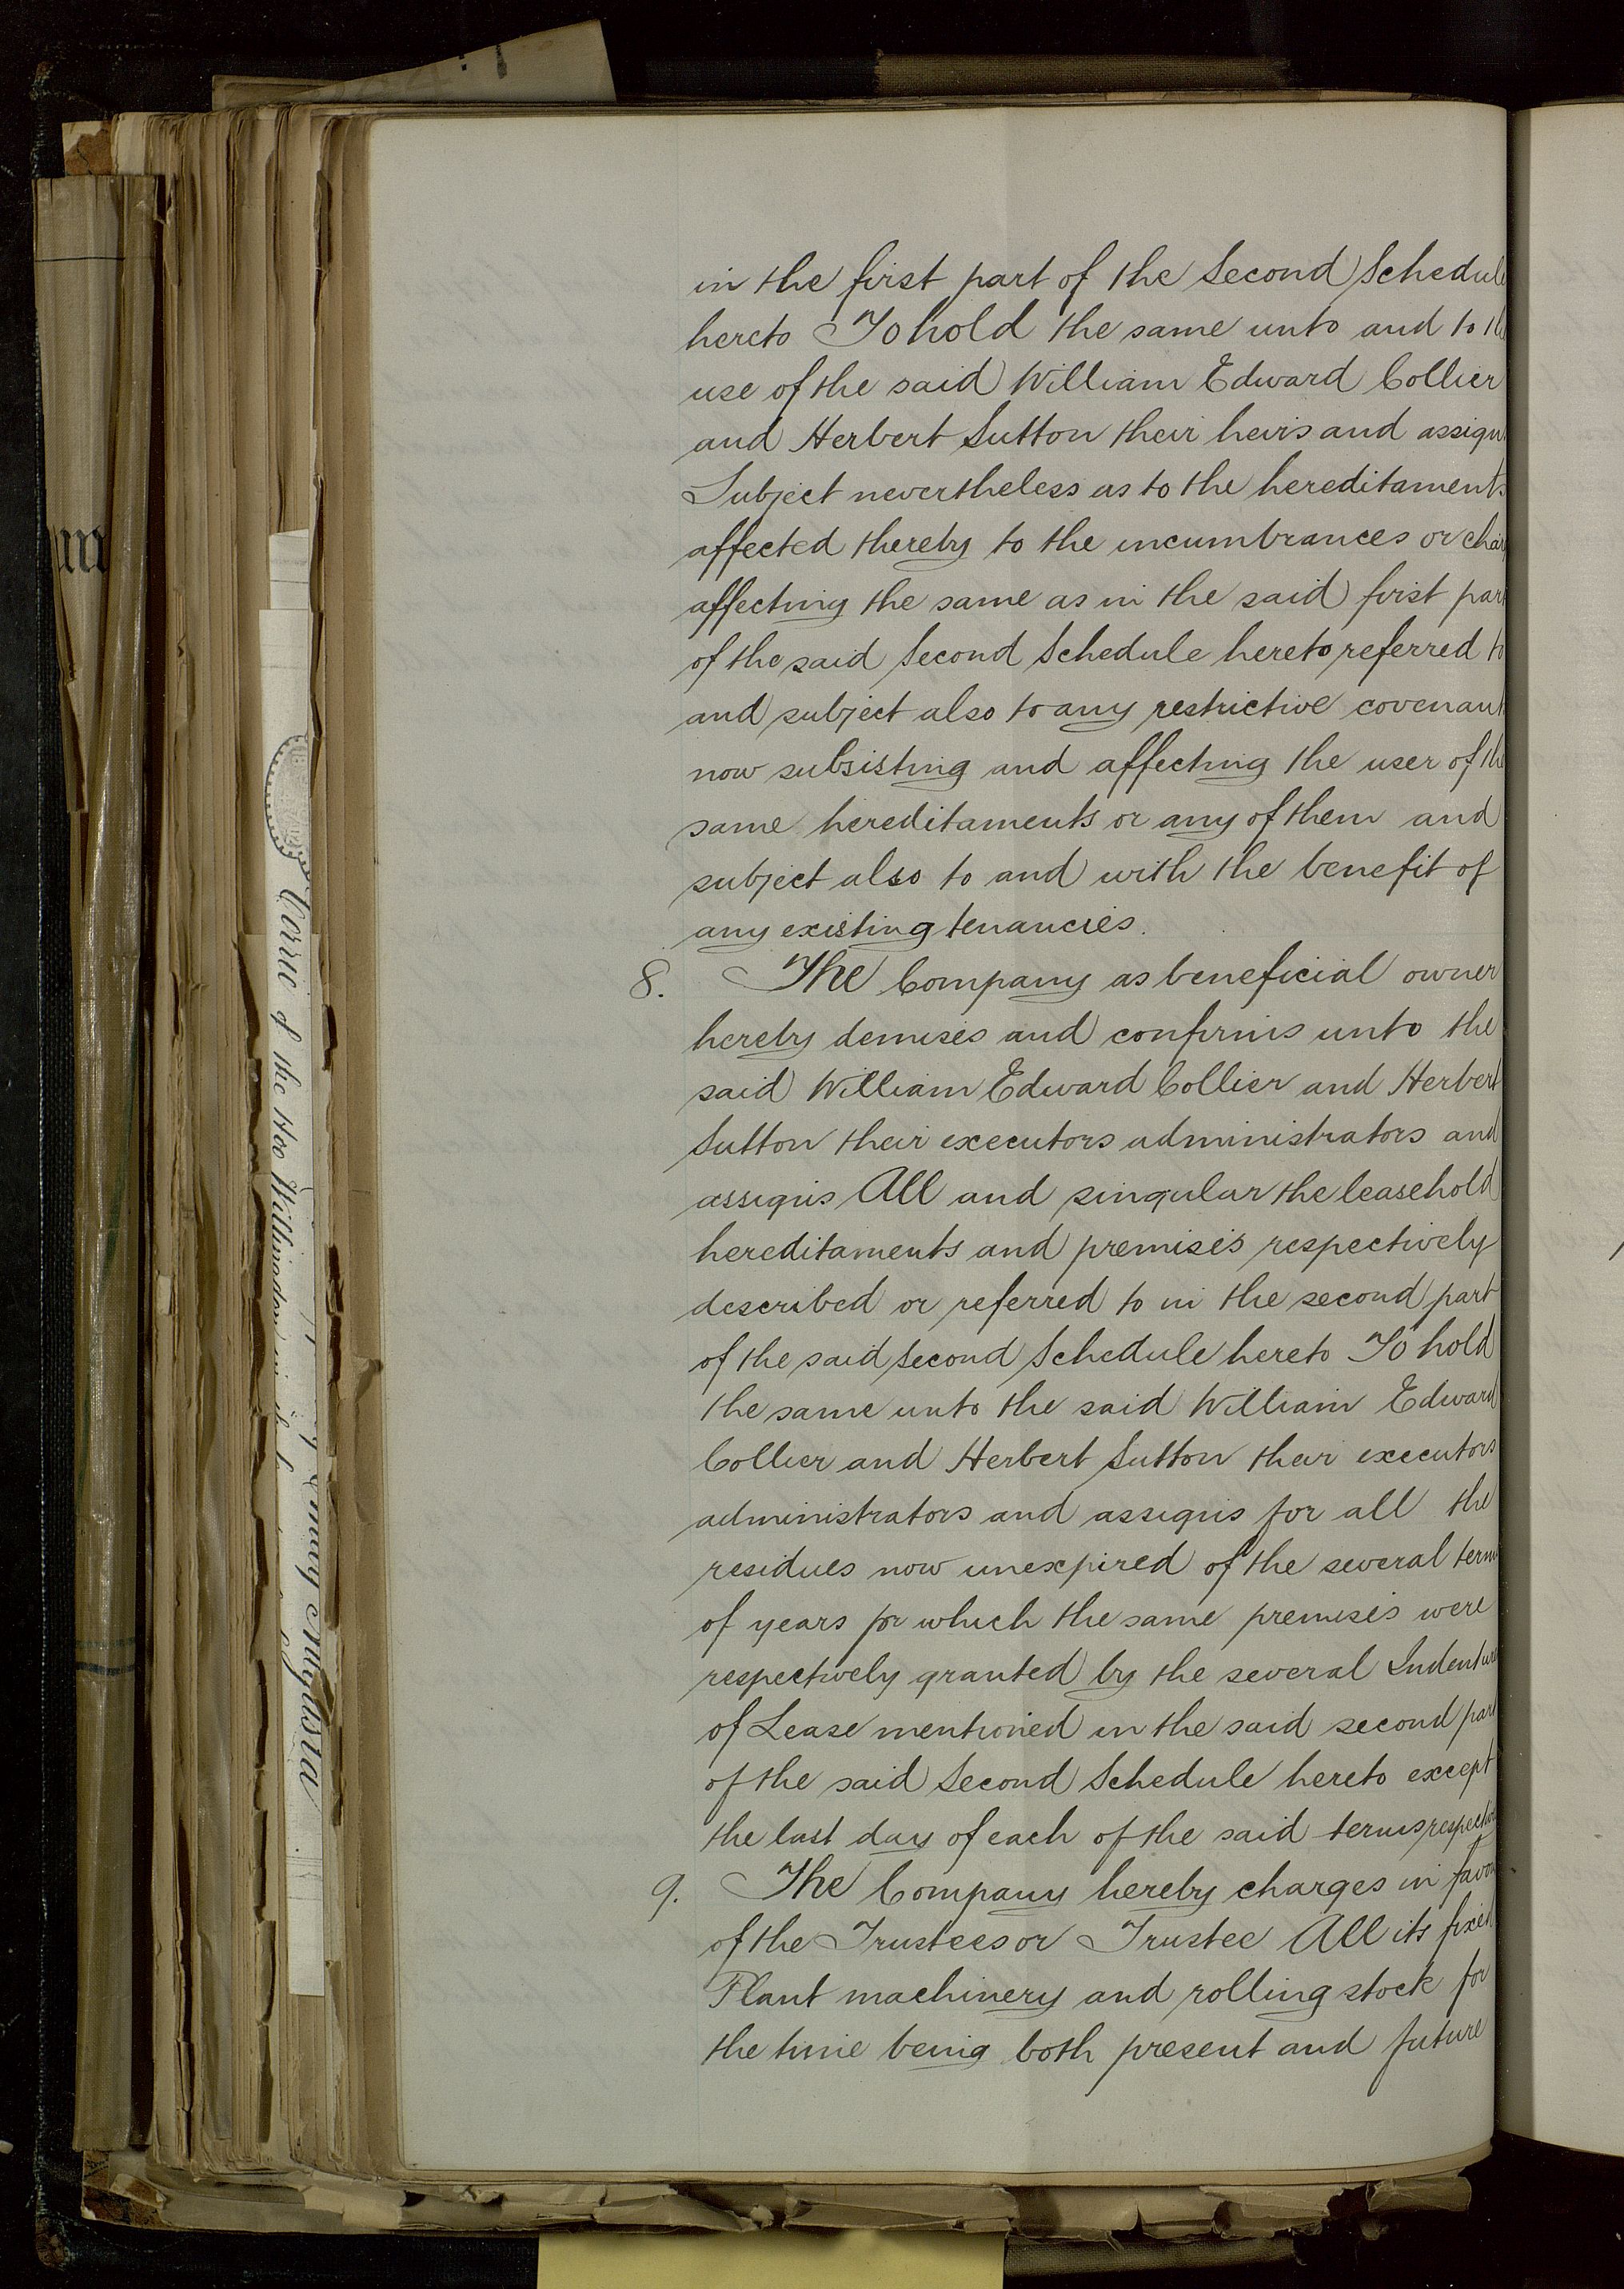 in the first part of the Second Schedule
hereto To hold the same unto and to the
use of the said William Edward Collier
and Herbert Sutton their heirs and assigns
Subject nevertheless as to the hereditaments
affected thereby to the incumbrances or
affecting the same as in the said first part
of the said Second Schedule hereto referred to
and subject also to any restrictive covenant
now subsisting and affecting the user of the
same hereditaments or any of them and
subject also to and with the benefit of
any existing tenancies.
8. The Company as beneficial owner
hereby demises and confirms unto the
said William Edward Collier and Herbert
Sutton their executors administrators and
assigns All and singular the leasehold
hereditaments and premises respectively
described or referred to in the second part
of the said Second Schedule hereto To hold
the same unto the said William Edward
Collier and Herbert Sutton their executors
administrators and assigns for all the
residues now unexpired of the several terms
of years for which the same premises were
respectively granted by the several Indentures
of Lease mentioned in the said second part
of the said Second Schedule hereto except
the last day of each of the said terms respectively
9. The Company hereby charges in favour
of the Trustees or Trustee All its fixed
Plant machinery and rolling stock for
the time being both present and future
of the